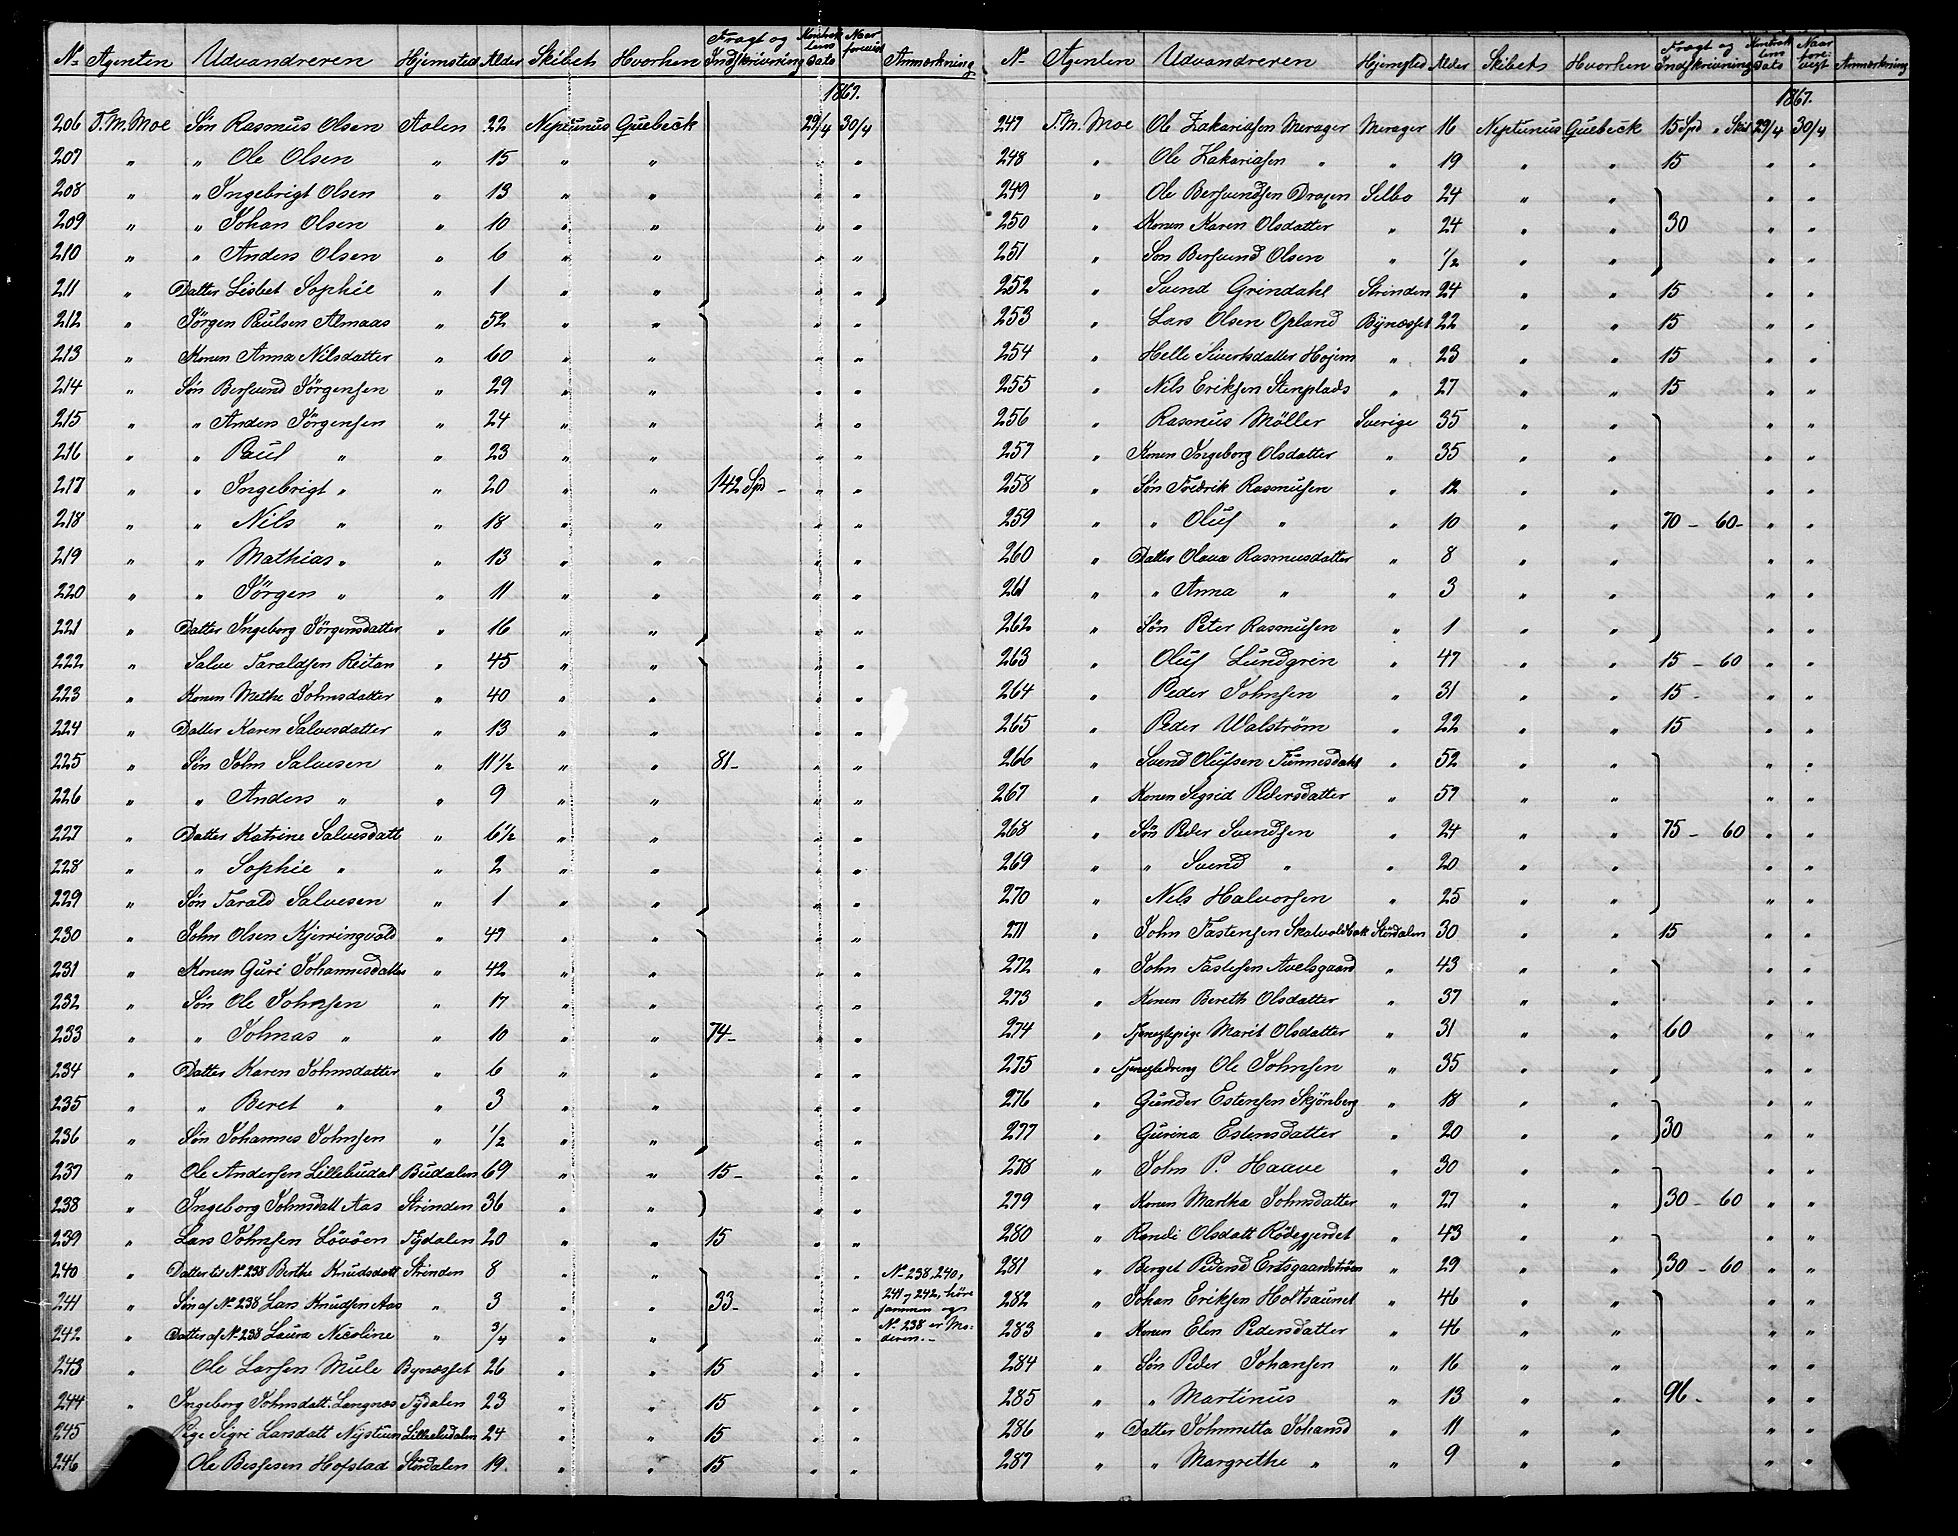 No Agenten Udvandreren Hjemsted Alder Skibet Hvorhen Fragt og Indskrivning Kontraktens Dato Naar forevist Anmærkning
1867.
206 T. M. Moe Søn Rasmus Olsen Aalen 22 Neptunus Quebeck 29/4 30/4
207 " " Ole Olsen " 15 " " " "
208 " " Ingebrigt Olsen " 13 " " " "
209 " " Johan Olsen " 10 " " " "
210 " " Anders Olsen " 6 " " " "
211 " Datter Lisbet Sophie " 1 " " " "
212 " Jörgen Paulsen Almaas " 52 " " " "
213 " Konen Anna Nilsdatter " 60 " " " "
214 " Søn Bersvend Jörgensen " 29 " " " "
215 " " Anders Jörgensen " 24 " " " "
216 " " Paul " " 23 " " " "
217 " " Ingebrigt " " 20 " " 142 Spd - " "
218 " " Nils " " 18 " " " "
219 " " Mathias " " 13 " " " "
220 " " Jörgen " " 11 " " " "
221 " Datter Ingeborg Jörgensdatter " 16 " " " "
222 " Salve Taraldsen Reitan " 45 " " " "
223 " Konen Methe Johnsdatter " 40 " " " "
224 " Datter Karen Salvesdatter " 13 " " " "
225 " Søn John Salvesen " 11 1/2 " " 81- " "
226 " " Anders " " 9 " " " "
227 " Datter Katrine Salvesdatt " 6 1/2 " " " "
228 " " Sophie " " 2 " " " "
229 " Søn Tarald Salvesen " 1 " " " "
230 " John Olsen Kjerringvold " 49 " " " "
231 " Konen Guri Johannesdatter " 42 " " " "
232 " Søn Ole Johnsen " 17 " " " "
233 " " Johnas " " 10 " " 74- " "
234 " Datter Karen Johnsdatter " 6 " " " "
235 " " Beret " " 3 " " " "
236 " Søn Johannes Johnsen " 1/2 " " " "
237 " Ole Andersen Lillebudal Budalen 69 " " 15- " "
238 " Ingeborg Johnsdatt Aas Strinden 36 " " " "
239 " Lars Johnsen Lövöen Tydalen 20 " " 15 " "
240 " Datter til No 238 Berthe Knudsdatt Strinden 8 " " " " No 238, 240,
241 " Søn af No 238 Lars Knudsen Aas " 3 " " 33- " " 241 og 242, höre sammen og
242 " Datter af No 238 Laura Nicoline " 3/4 " " " " No 238 er Moderen.-
243 " Ole Larsen Mule Bynæsset 26 " " 15 " "
244 " Ingeborg Johnsdatt. Langnæs Tydalen 23 " " 15 " "
245 " Pige Sigri Larsdatt Nystuen Lillebudalen 24 " " 15 " "
246 Ole Bessesen Hofstad Størdalen 19. " " 15 " "
No Agenten Udvandreren Hjemsted Alder Skibets Hvorhen Fragt og Indskrivning Kontraktens Dato Naar forevist Anmærkning
1867.
247 T. M. Moe Ole Zakariasen Merager Merager 16 Neptunus Quebeck 15 Spd " Skil 29/4 30/4
248 " Ole Zakariasen " " 19 " " 15 " "
249 " Ole Bersvendsen Draxen Selbo 24 " " " "
250 " Konen Karen Olsdatter " 24 " " 30 " "
251 " Søn Bersvend Olsen " 1/2 " " " "
252 " Svend Grindahl Strinden 24 " " 15 " "
253 " Lars Olsen Opland Bynæsset 22 " " 15 " "
254 " Helle Sivertsdatter Hojem " 23 " " 15 " "
255 " Nils Eriksen Stenplads " 27 " " 15 " "
256 " Rasmus Möller Sverige 35 " " " "
257 " Konen Ingeborg Olsdatter " 35 " " " "
258 " Søn Fredrik Rasmusen " 12 " " " "
259 " " Oluf " " 10 " " 70 - 60- " "
260 " Datter Olava Rasmusdatter " 8 " " " "
261 " " Anna " " 3 " " " "
262 " Søn Peter Rasmusen " 1 " " " "
263 " Oluf Lundgrin " 47 " " 15 - 60 " "
264 " Peder Johnsen " 31 " " 15- " "
265 " Peder Walström " 22 " " 15 " "
266 " Svend Olufsen Tunnesdahl " 52 " " " "
267 " Konen Sigrid Pedersdatter " 57 " " " "
268 " Søn Peder Svendsen " 24 " " 75 - 60 " "
269 " " Svend " " 20 " " " "
270 " Nils Halvorsen " 25 " " " "
271 " John Fastensen Skalvoldbak Størdalen 30 " " 15 " "
272 " John Fastesen Avelsgaard " 43 " " " "
273 " Konen Bereth Olsdatter " 37 " " " "
274 " Tjenestepige Marit Olsdatter " 31 " " 60 " "
275 " Tjenestedreng Ole Johnsen " 35 " " " "
276 " Gunder Estensen Skjönberg " 18 " " " "
277 " Gurina Estensdatter " 20 " " 30 " "
278 " John P. Haave " 30 " " " "
279 " Konen Martha Johnsdatter " 27 " " 30 - 60 " "
280 " Randi Olsdatt Rödegjerdet " 43 " " " "
281 " Berget Pedersd Ertsgaardströen " 29 " " 30 - 60 " "
282 " Johan Eriksen Holtsaunet " 46 " " " "
283 " Konen Elen Pedersdatter " 46 " " " "
284 " Søn Peder Johansen " 16 " " " "
285 " " Martinus " 13 " " 96- " "
286 " Datter Johnnetta Johansd " 11 " " " "
287 " " Margrethe " " 9 " " " "